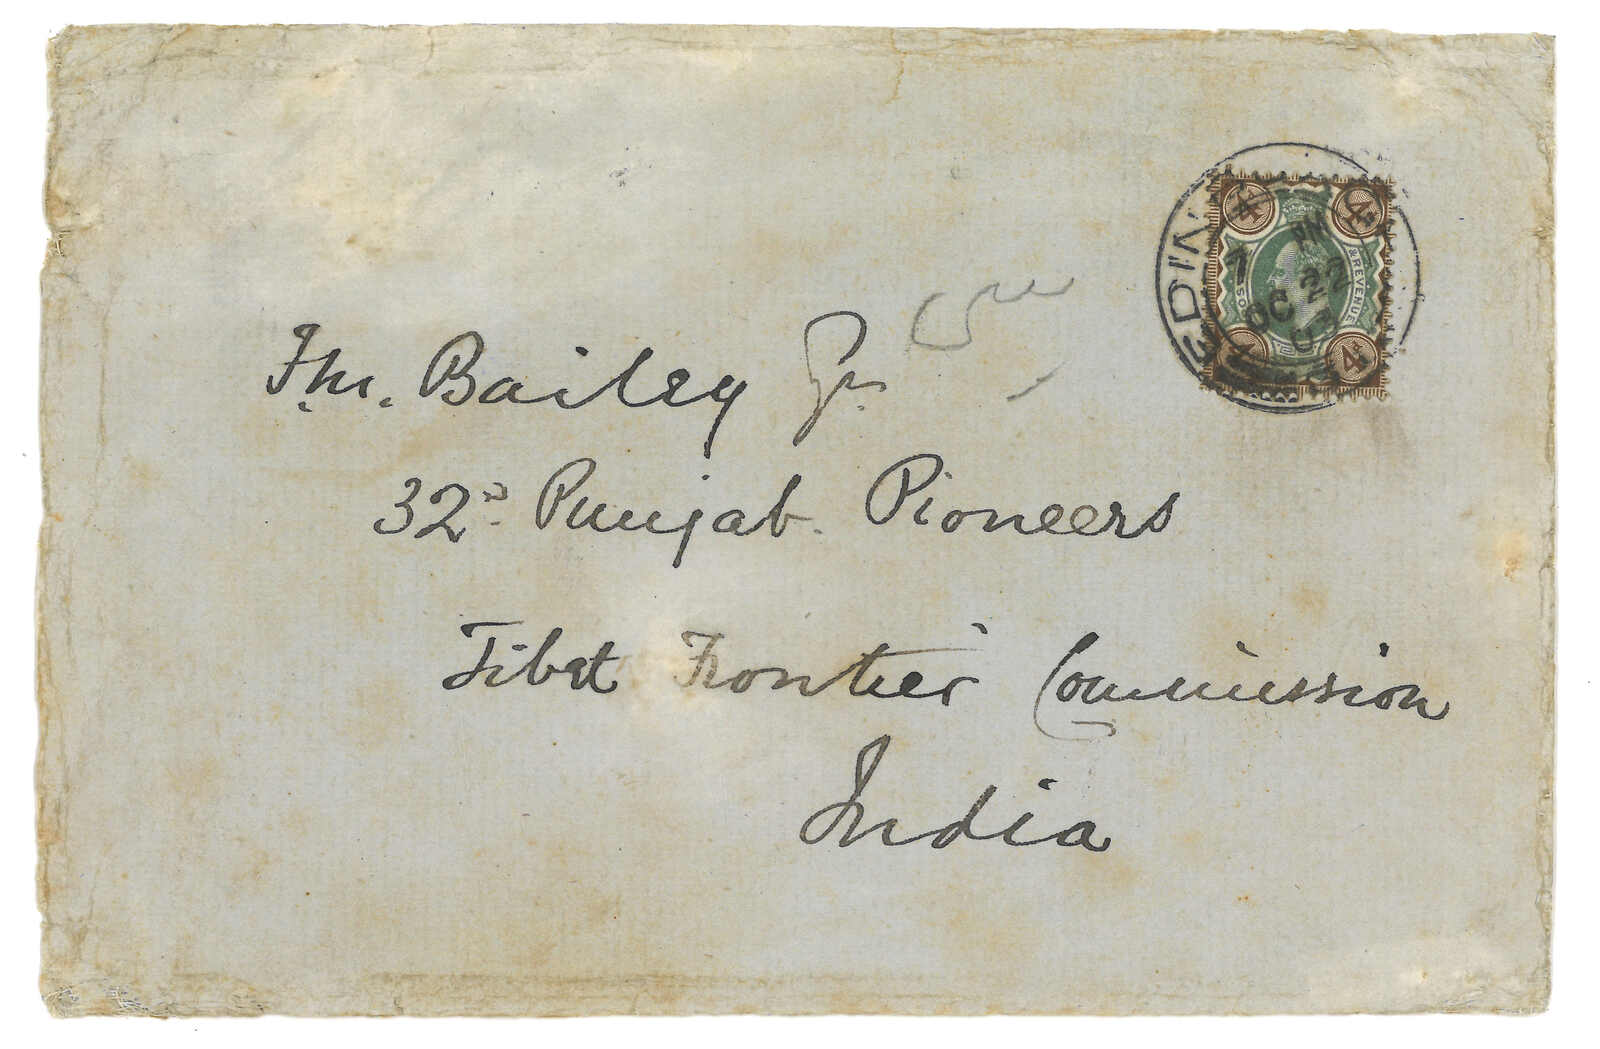 EDIN
7 PM
OC 22
03
4
& REVENUE
F.M. Bailey
32D. Punjab. Pioneers
Tibet Frontier Commission
India